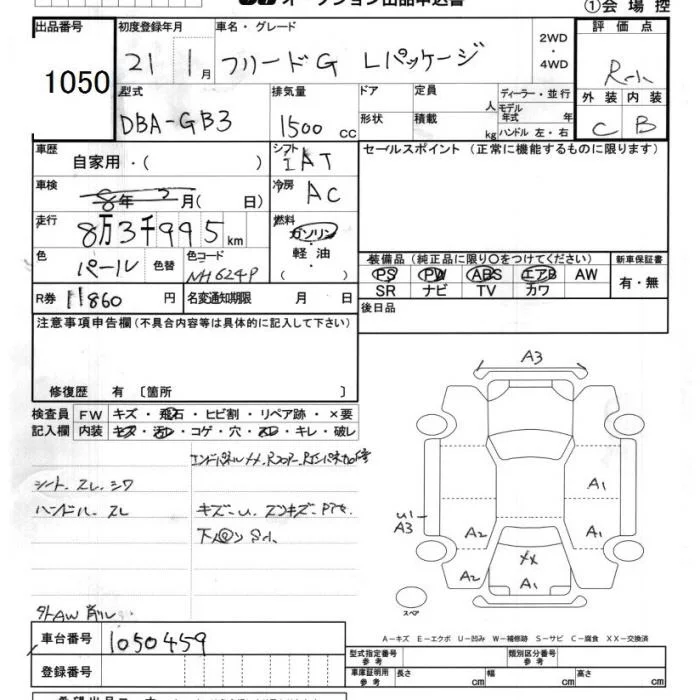 オークション出品申込書
①会場控
出品番号 初度登録年月 車名・グレード 評価点
1050 21 1月 フリードG Lパッケージ 2WD・4WD
外装 内装
C B
型式 排気量 ドア 定員 ディーラー・並行
DBA-GB3 1500cc 人 モデル年式 年
形状 積載 kg ハンドル 左・右
車歴 自家用・( ) シフト IAT セールスポイント (正常に機能するものに限ります)
車検 8年 月( 日) 冷房 AC
走行 8万3千995km 燃料 ガソリン・軽油・( )
色 パール 色替 色コード NH624P
装備品 (純正品に限り○をつけてください) 新車保証書
PS PW ABS エアB AW 有・無
SR ナビ TV カワ
R券 11860円 名変通知期限 月 日
後日品
注意事項申告欄(不具合内容等は具体的に記入して下さい)
修復歴 有 〔箇所 〕
検査員 FW キズ・飛石・ヒビ割・リペア跡・×要
記入欄 内装 キズ・汚レ・コゲ・穴・スレ・キレ・破レ
シート.スレ.シワ
ハンドル.スレ
外AW 削レ
A3
A1
U1
A3
A2
A1
XX
A2
A1
スペア
A-キズ E-エクボ U-凹み W-補修跡 S-サビ C-腐食 XX-交換済
車台番号 1050459
登録番号
型式指定番号 参考 類別区分番号 参考
車庫証明用 参考 長さ cm 幅 cm 高さ cm